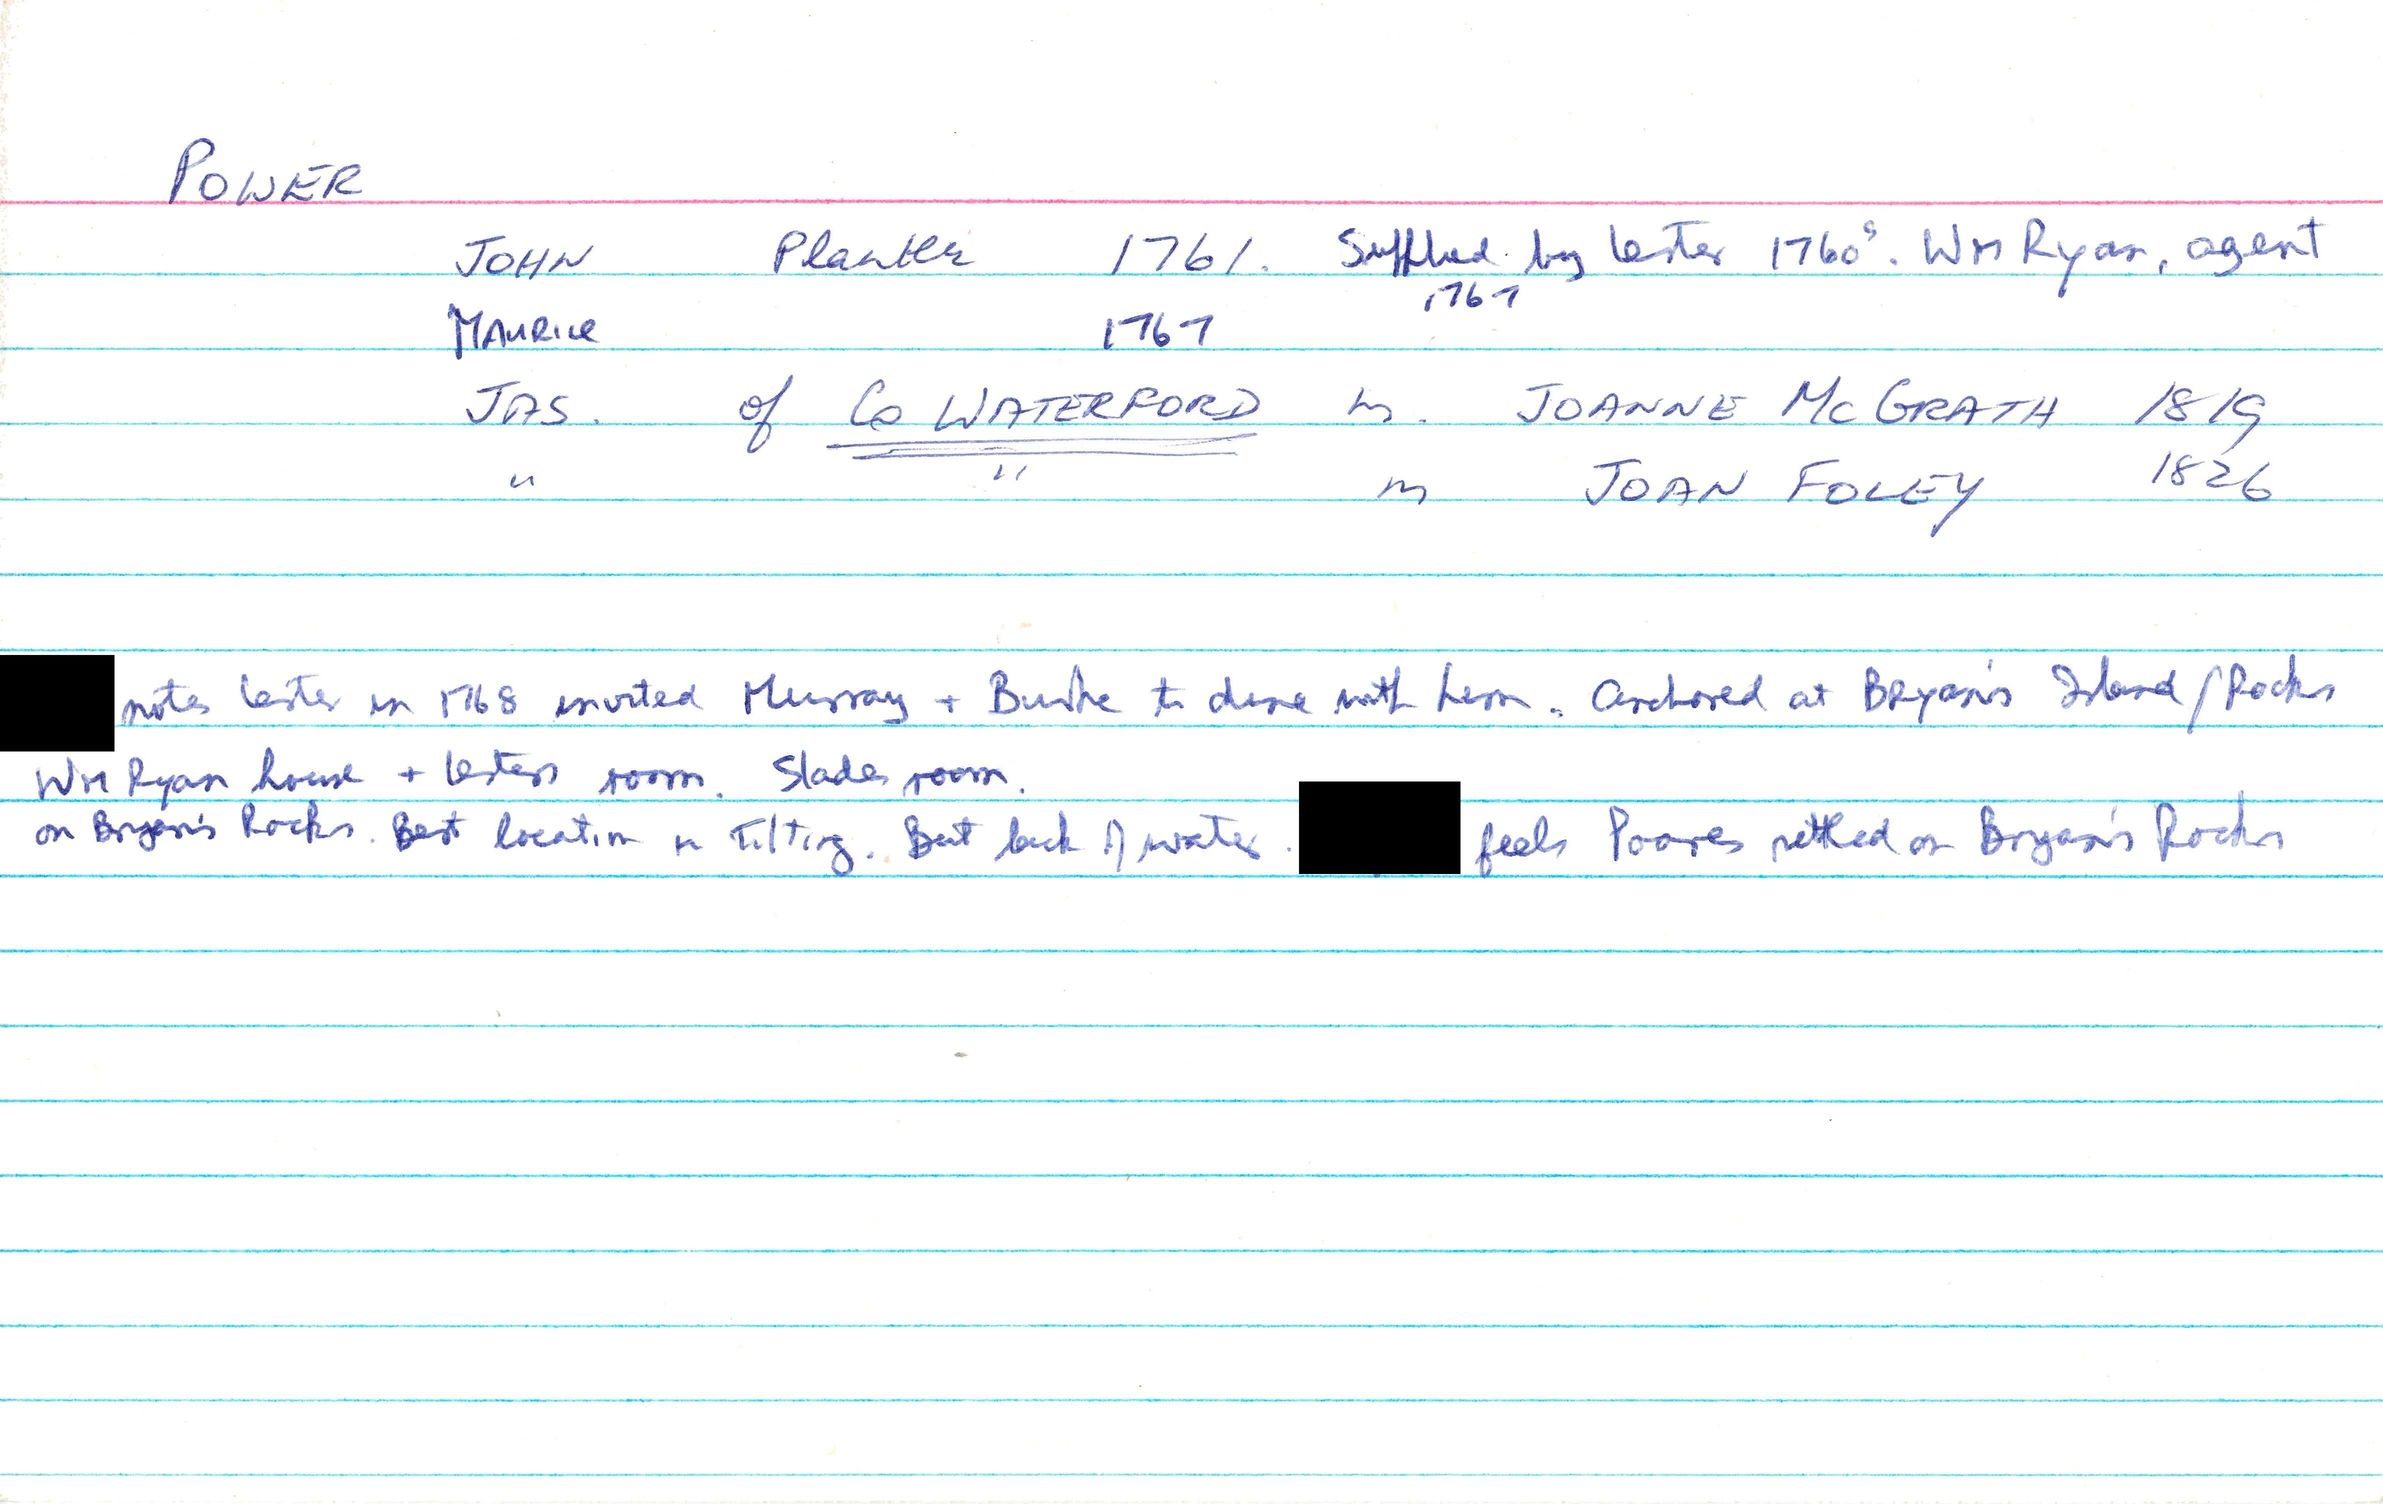 POWER
JOHN Planter 1761. Supplied by Lester 1760s. WM Ryan, agent
1767
MAURICE 1767
JAS. of Co WATERFORD m. JOANNE MCGRATH 1819
" " m JOAN FOLEY 1826
notes Lester in 1768 invited Murray + Burke to dine with him. Anchored at Bryan's Island/Rocks
WM Ryan house + Lesters room. Slades room.
on Bryan's Rocks. Best location in Tilting. But lack of water. feels Powers settled on Bryan's Rocks